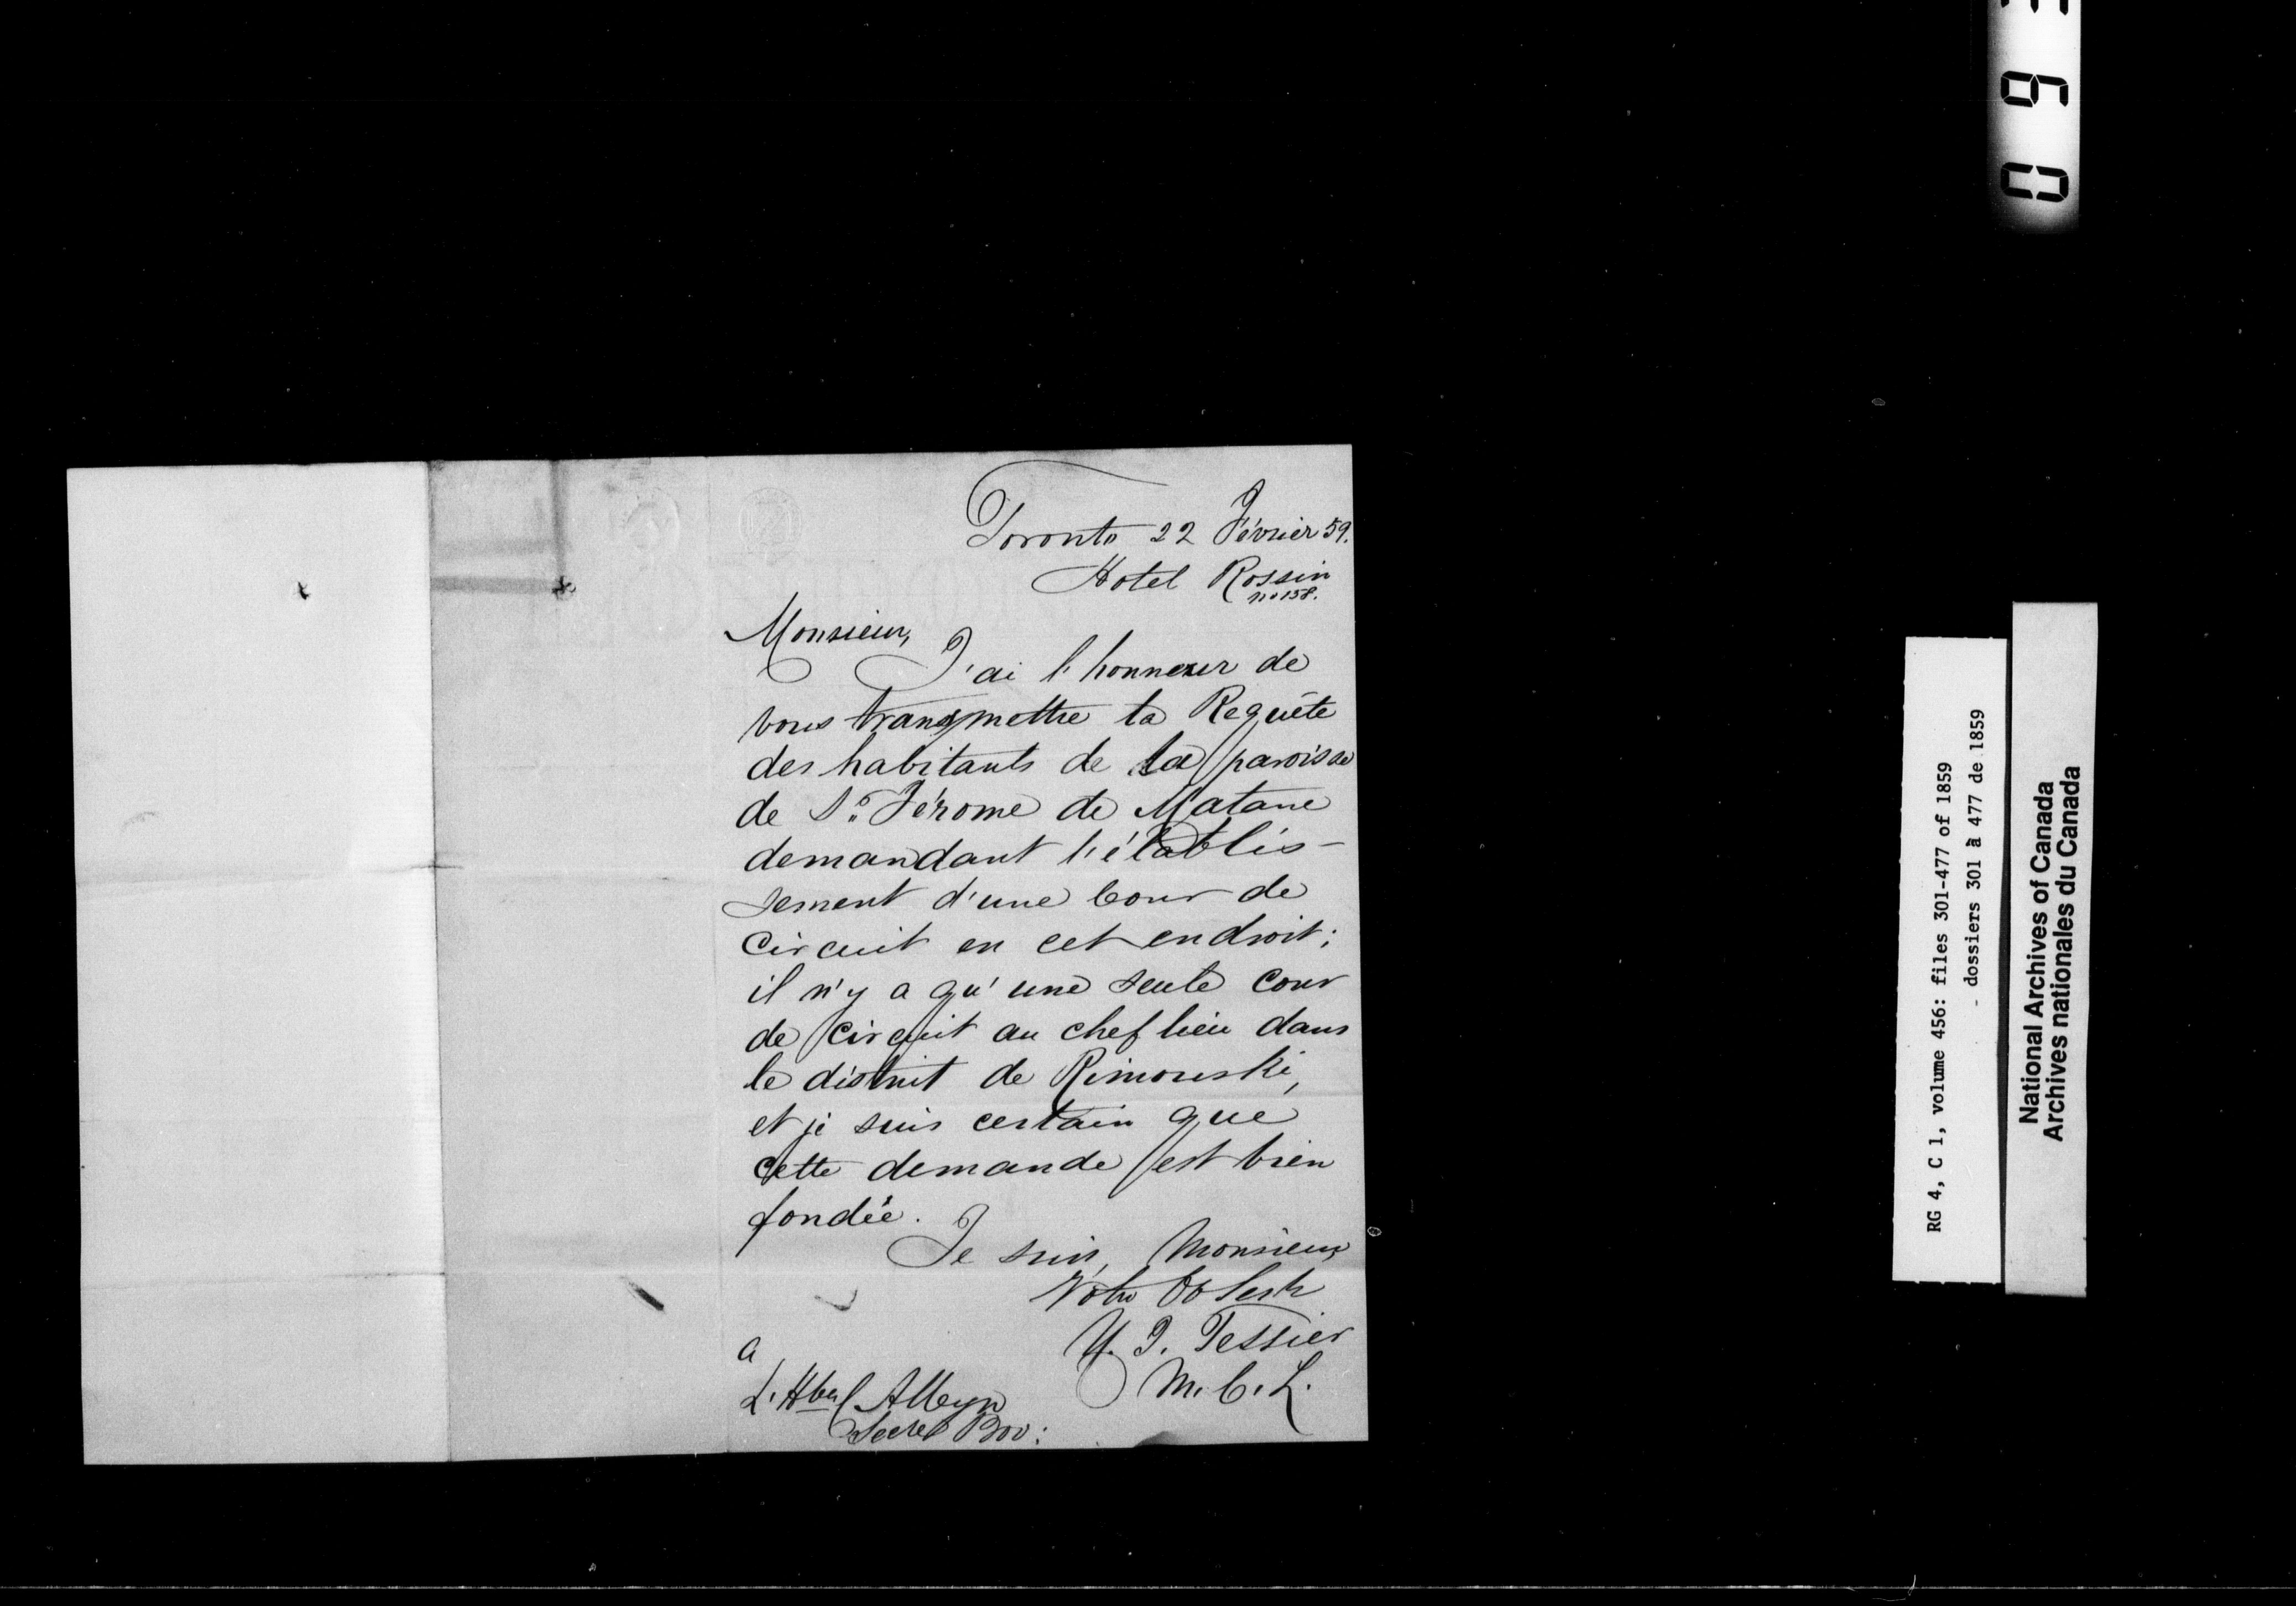 Toronto 22 Février 59.
Hotel Rossin
no 158.
Monsieur,
J'ai l'honneur de
vous transmettre la Requête
des habitants de la paroisse
de St. Jérome de Matane
demandant l'établis-
sement d'une Cour de
Circuit en cet endroit;
il n'y a qu'une seule Cour
de Circuit au chef lieu dans
le district de Rimouski,
et je suis certain que
cette demande est bien
fondée.
Je suis, Monsieur,
Votre Ob Servt
U. J. Tessier
M. C. L.
a
L'Hble C Alleyn
Secret Prov:
093
RG 4, C 1, volume 456: files 301-477 of 1859
- dossiers 301 à 477 de 1859
National Archives of Canada
Archives nationales du Canada